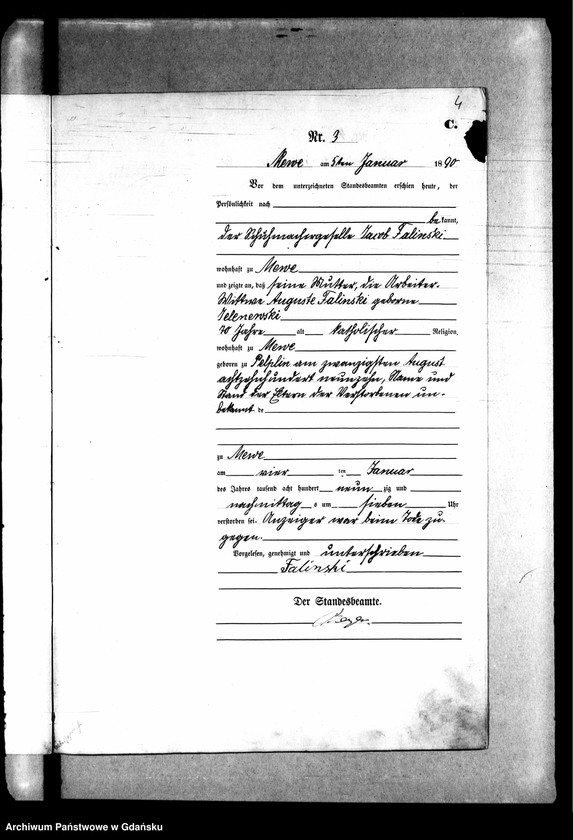 4
C.
Nr. 3
Mewe am 5ten Januar 1890
Vor dem unterzeichneten Standesbeamten erschien heute, der
Persönlichkeit nach
bekannt,
der Schuhmachergeselle Jacob Falinski
wohnhaft zu Mewe
und zeigte an, daß seine Mutter, die Arbeiter-
Wittwe Auguste Falinski geborne
Zelenewski
70 Jahre alt katholischer Religion,
wohnhaft zu Mewe
geboren zu Pelplin am zwanzigsten August
achtzehnhundert neunzehn, Name und
Stand der Eltern der Verstorbenen un-
bekannt de
zu Mewe
am vier ten Januar
des Jahres tausend acht hundert neun zig und
nachmittag s um sieben Uhr
verstorben sei. Anzeiger war beim Tode zu-
gegen.
Vorgelesen, genehmigt und unterschrieben
Falinski
Der Standesbeamte.
Archiwum Państwowe w Gdańsku